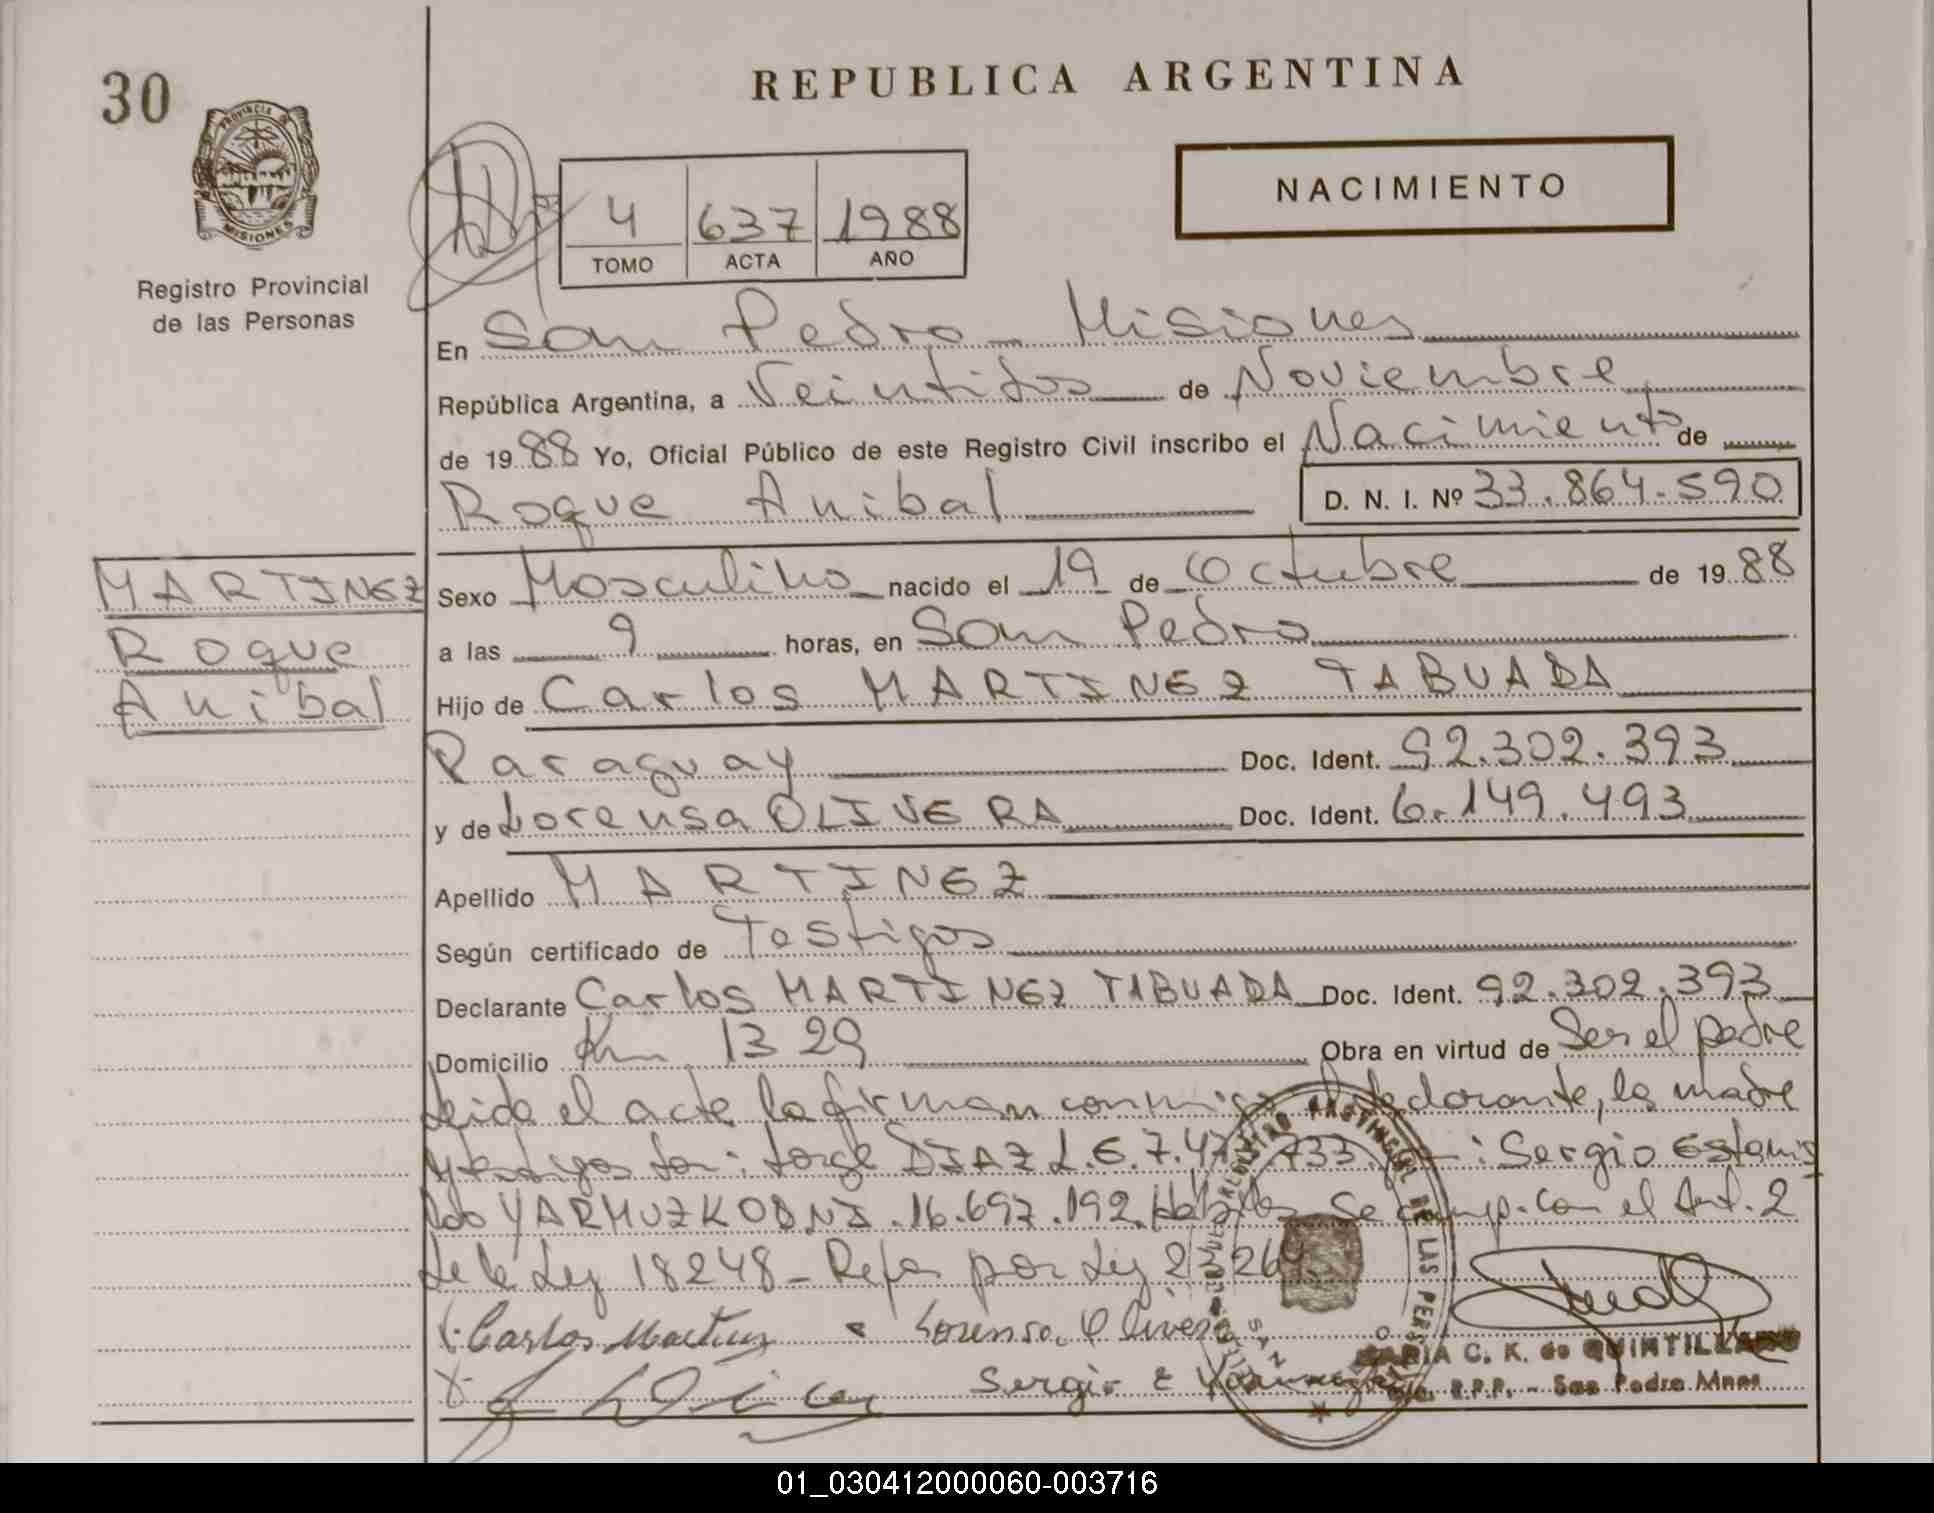 30
REPUBLICA ARGENTINA
PROVINCIA DE
MISIONES
Registro Provincial
de las Personas
NACIMIENTO
4 637 1988
TOMO ACTA AÑO
En San Pedro - Misiones
República Argentina, a Veintidos de Noviembre
de 1988 Yo, Oficial Público de este Registro Civil inscribo el Nacimiento de
Roque Anibal D. N. I. Nº 33.864.590
MARTINEZ
Roque
Anibal
Sexo Masculino nacido el 19 de Octubre de 1988
a las 9 horas, en San Pedro
Hijo de Carlos MARTINEZ TABUADA
Paraguay Doc. Ident. 92.302.393
y de Lorensa OLIVERA Doc. Ident. 6.149.493
Apellido MARTINEZ
Según certificado de Testigos
Declarante Carlos MARTINEZ TABUADA Doc. Ident. 92.302.393
Domicilio Km 1329 Obra en virtud de Ser el padre
Leida el acta la firman conmigo la madre
y testigos Jorge DIAZ L.E. 7.47 733 : Sergio Estanis
lao D.N.I. 16.697.192 Se cump. con el Art. 2
de la Ley 18248 - Ref. por Ley 23264.
Carlos Martinez Lorensa Olivera
Sergio E
REGISTRO PROVINCIAL DE LAS PERS
SAN
MARIA C. K. de QUINTILLANO
R.P.P. - San Pedro Mnes
01_030412000060-003716